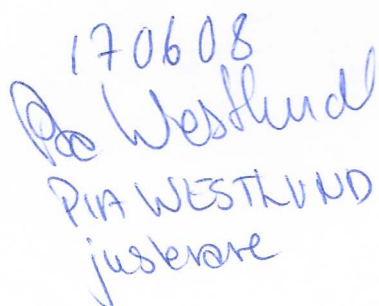 170608
Pia Westlund
PIA WESTLUND
justerare